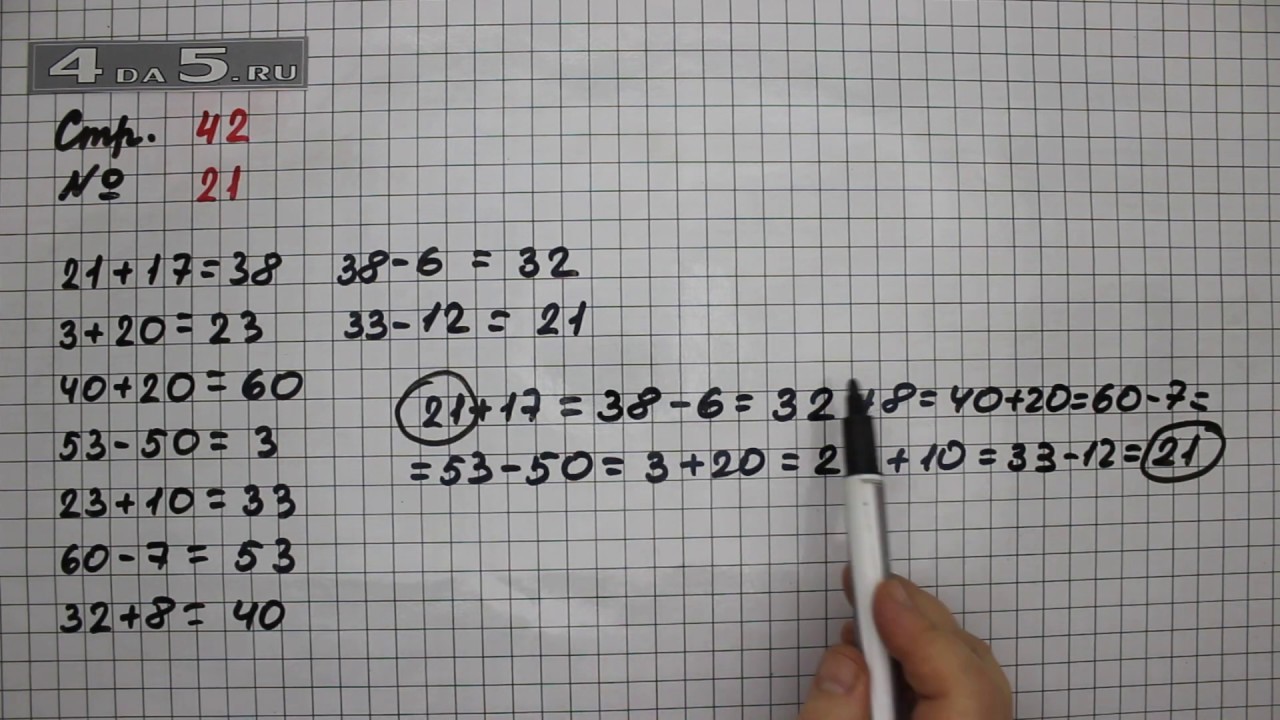 4 DA 5.RU
Стр. 42
№ 21
21+17=38
3+20=23
40+20=60
53-50=3
23+10=33
60-7=53
32+8=40
38-6=32
33-12=21
21+17=38-6=32+8=40+20=60-7=
=53-50=3+20=2 +10=33-12=21